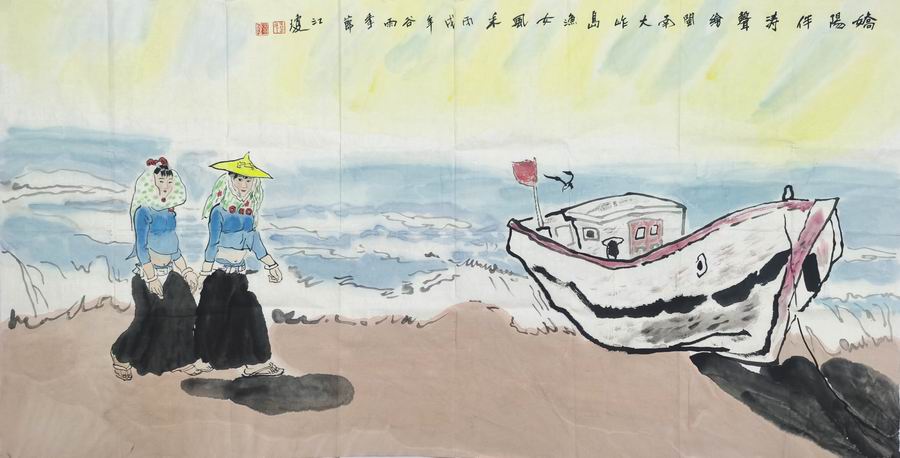 嬌陽伴涛聲繪閩南大岞島漁女風采丙戌年谷雨季節江瓊